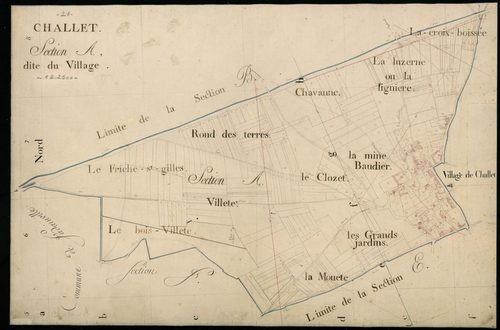 CHALLET.
Section A,
dite du Village.
La croix-boissée
La luzerne
ou la
lignière.
Chavanne.
Limite de la Section B.
Rond des terres.
Nord
Le Friche-st-gilles.
Section A,
la mine
Baudier.
le Clozet.
Village de Challet
Villete.
Le bois-Villete.
les Grands
jardins.
Section F.
la Mouete.
Limite de la Section E.
Commune de
a
c
d
e
f
g
h